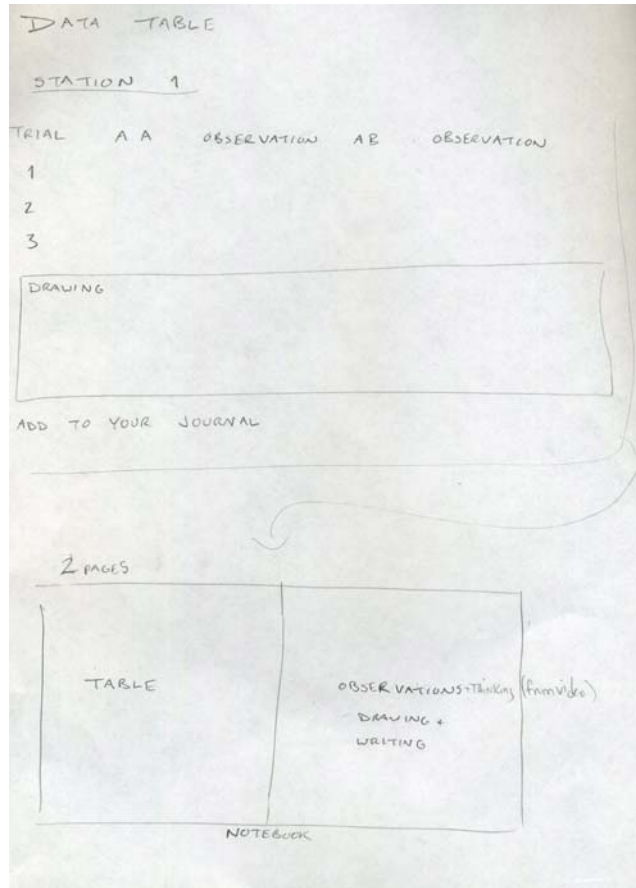 DATA TABLE
STATION 1
TRIAL A A OBSERVATION AB OBSERVATION
1
2
3
DRAWING
ADD TO YOUR JOURNAL
2 PAGES
TABLE
OBSERVATIONS + Thinking (from video)
DRAWING +
WRITING
NOTEBOOK